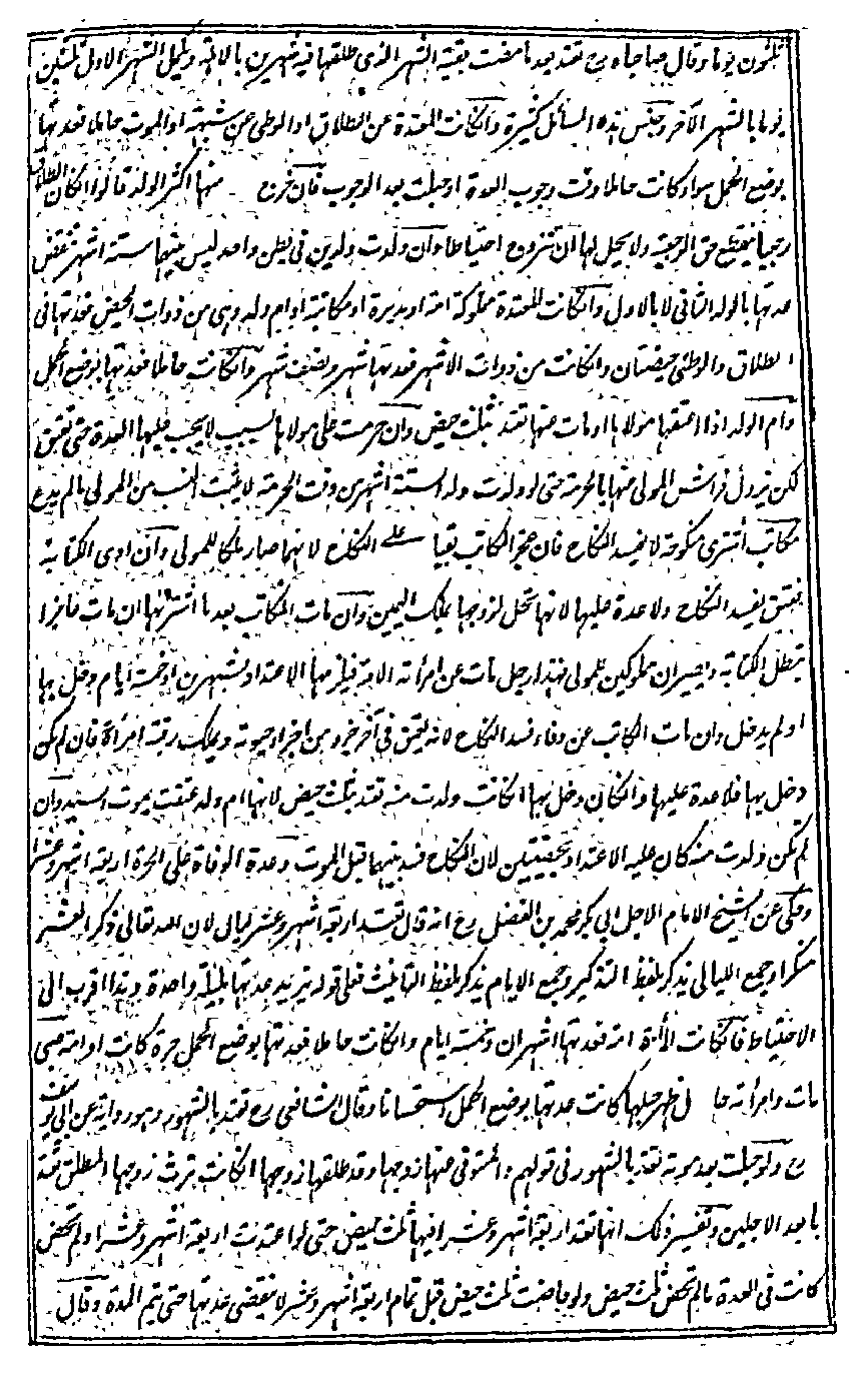 ثلثون يوما وقال صاحباه رح تعتد بعد ما مضت بقية الشهر الذى طلقها فيه شهرين بالاهلة وتكمل الشهر الاول ثلثين
يوما بالشهر الآخر وجنس هذه المسائل كثيرة وان كانت المعتدة عن الطلاق او الوطى عن شبهة او الموت حاملا فعدتها
بوضع الحمل سواء كانت حاملا وقت وجوب العدة او حبلت بعد الوجوب فان خرج منها اكثر الولد قالوا ان كان الطلاق
رجعيا ينقطع حق الرجعة ولا يحل لها ان تتزوج احتياطا وان ولدت ولدين فى بطن واحد ليس بينهما ستة اشهر تنقضى
عدتها بالولد الثانى لا بالاول وان كانت المعتدة مملوكة امة او مدبرة او مكاتبة او ام ولد وهى من ذوات الحيض فعدتها فى
الطلاق والوطى حيضتان وان كانت من ذوات الاشهر فعدتها شهر ونصف شهر وان كانت حاملا فعدتها بوضع الحمل
وام الولد اذا اعتقها مولاها او مات عنها تعتد بثلث حيض وان حرمت على مولاها بسبب لا يجب عليها العدة حتى تعتق
لكن يزول فراش المولى عنها بالحرمة حتى لو ولدت ولدا لستة اشهر من وقت الحرمة لا يثبت النسب من المولى ما لم يدع
مكاتب اشترى منكوحته لا يفسد النكاح فان عجز المكاتب بقيا على النكاح لانهما صارا ملكا للمولى وان ادى الكتابة
يعتق يفسد النكاح ولا عدة عليها لانها تحل لزوجها بملك اليمين وان مات المكاتب بعد ما اشتراها ان مات عاجزا
تبطل الكتابة ويصيران مملوكين للمولى فهذا رجل مات عن امرأته الامة فيلزمها الاعتداد بشهرين وخمسة ايام دخل بها
او لم يدخل وان مات المكاتب عن وفاء فسد النكاح لانه يعتق فى آخر جزء من اجزاء حيوته ويملك رقبة امرأته فان لم يكن
دخل بها فلا عدة عليها وان كان دخل بها ان كانت ولدت منه تعتد بثلث حيض لانها ام ولد عتقت بموت السيد وان
لم تكن ولدت منه كان عليه الاعتداد بحيضتين لان النكاح فسد بينهما قبل الموت وعدة الوفاة على الحرة اربعة اشهر وعشرا
وحكى عن الشيخ الامام الاجل ابى بكر محمد بن الفضل رح انه قال تعتد اربعة اشهر وعشر ليال لان الله تعالى ذكر العشر
منكرا وجمع الليالى يذكر بلفظ التذكير وجمع الايام يذكر بلفظ التانيث فعلى قوله تزيد عدتها بليلة واحدة وهذا اقرب الى
الاحتياط فان كانت المرأة امة فعدتها شهران وخمسة ايام وان كانت حاملا فعدتها بوضع الحمل حرة كانت او امة صبى
مات وامرأته حامل ظهر حبلها كانت عدتها بوضع الحمل استحسانا وقال الشافعى رح تعتد بالشهور وهو رواية عن ابى يوسف
رح ولو حبلت بعد موته تعتد بالشهور فى قولهم والمتوفى عنها زوجها وقد طلقها زوجها ان كانت ترث زوجها المطلق تعتد
بابعد الاجلين وتفسير ذلك انها تعتد اربعة اشهر وعشرا فيها ثلث حيض حتى لو اعتدت اربعة اشهر وعشرا ولم تحض
كانت فى العدة ما لم تحض ثلث حيض ولو حاضت ثلث حيض قبل تمام اربعة اشهر وعشر لا تنقضى عدتها حتى يتم المدة وقال